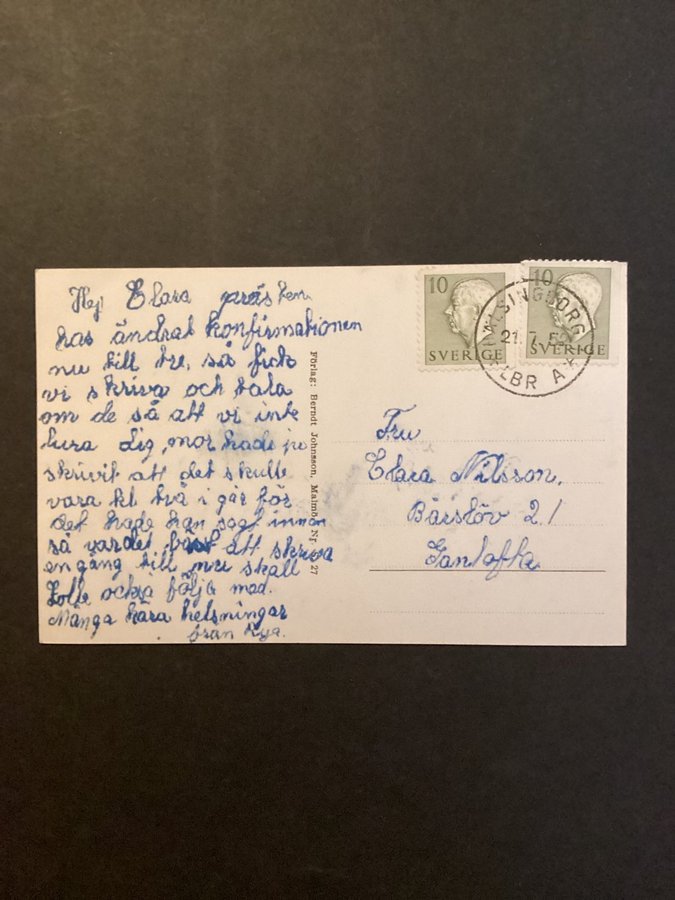 Hej! Clara prästen
has ändrat konfirmationen
nu till tre, så fick
vi skriva och tala
om de så att vi inte
lura dig, mor hade ju
skrivit att det skulle
vara kl två i går för
det hade han sagt innan
så vardet bäst att skriva
en gång till nu skall
också följa med.
Många kära helsningar
från
Förlag: Berndt Johnsson, Malmö Nr 27
10
SVERIGE
10
SVERIGE
HÄLSINGBORG
21. 7. 5
LBR A
Fru
Clara Nilsson.
Bårslöv 21
Gantofta